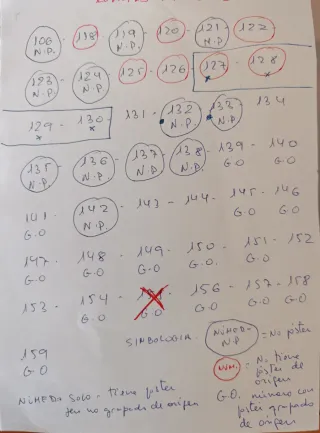 106 - 118 - 119 - 120 - 121 - 122
N.P. N.P. N.P.
123 - 124 - 125 - 126 - 127 - 128
N.P. N.P. x x
129 - 130 - 131 - 132 - 133 - 134
x x N.P. N.P.
135 - 136 - 137 - 138 - 139 - 140
N.P. N.P. N.P. N.P. G.O G.O
141 - 142 - 143 - 144 - 145 - 146
G.O N.P. G.O G.O
147 - 148 - 149 - 150 - 151 - 152
G.O G.O G.O G.O. G.O
153 - 154 - 156 - 157 - 158
G.O G.O G.O G.O G.O
159
G.O
SIMBOLOGIA. NÚMERO N.P = No póster
NÚM. = No tiene póster de origen
NÚMERO SOLO = tiene póster
pero no grapado de origen
G.O. número con
póster grapado
de origen